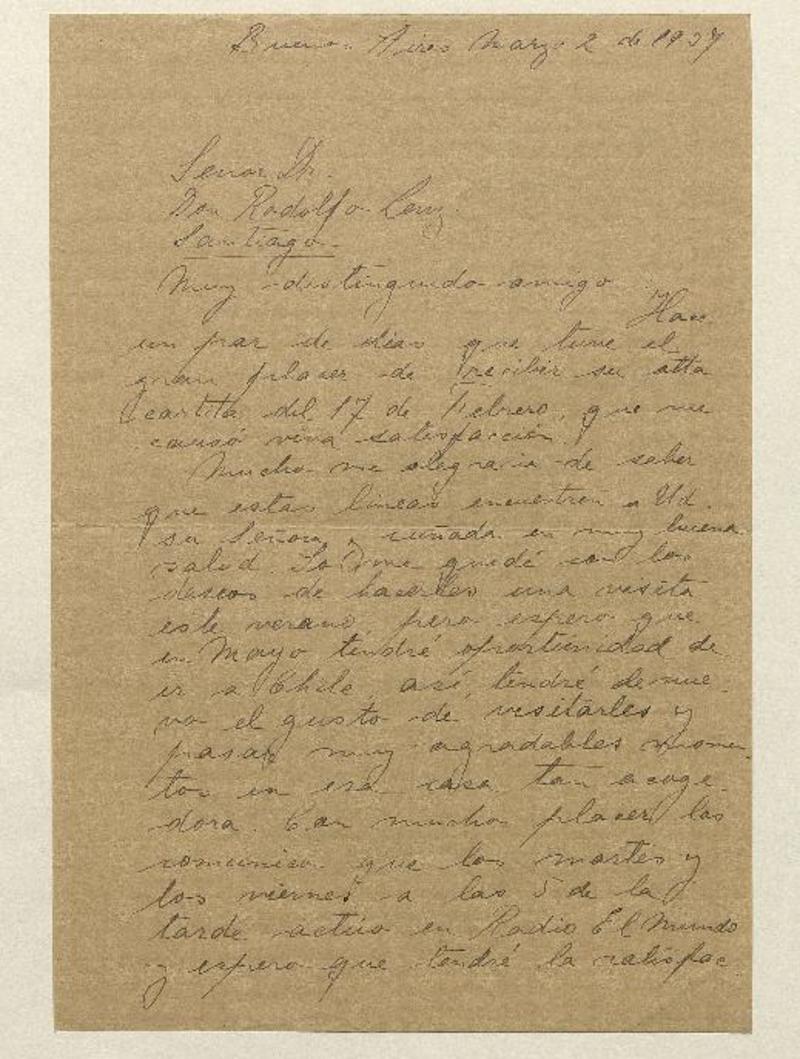 Buenos Aires Marzo 2 de 1937
Señor Dr.
Don Rodolfo Lenz.
Santiago.
Muy distinguido amigo:
Hace
un par de dias que tuve el
gran placer de recibir su atta
cartita del 17 de Febrero, que me
causó viva satisfacción.
Mucho me alegraria de saber
que estas lineas encuentren a Ud.
su Señora y cuñada en muy buena
salud. Yo me quedé con los
deseos de hacerles una visita
este verano, pero espero que
en Mayo tendré oportunidad de
ir a Chile así, tendré denue-
vo el gusto de visitarles y
pasar muy agradables momen-
tos en esa casa tan acoge-
dora. Con mucho placer les
comunico que los martes y
los viernes a las 5 de la
tarde actúo en Radio El Mundo
y espero que tendré la satisfac